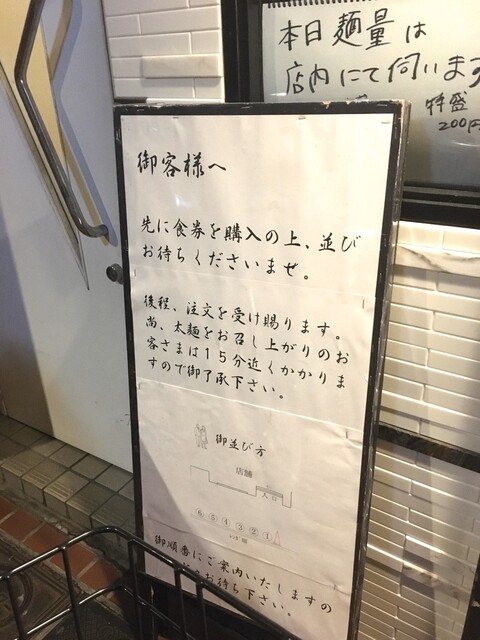 本日麺量は
店内にて伺います
特盛
200円
御客様へ
先に食券を購入の上、並び
お待ちくださいませ。
後程、注文を受け賜ります。
尚、太麺をお召し上がりのお
客さまは15分近くかかりま
すので御了承下さい。
御並び方
店舗
入口
⑥⑤④③②①
御順番にご案内いたしますの
お待ち下さい。